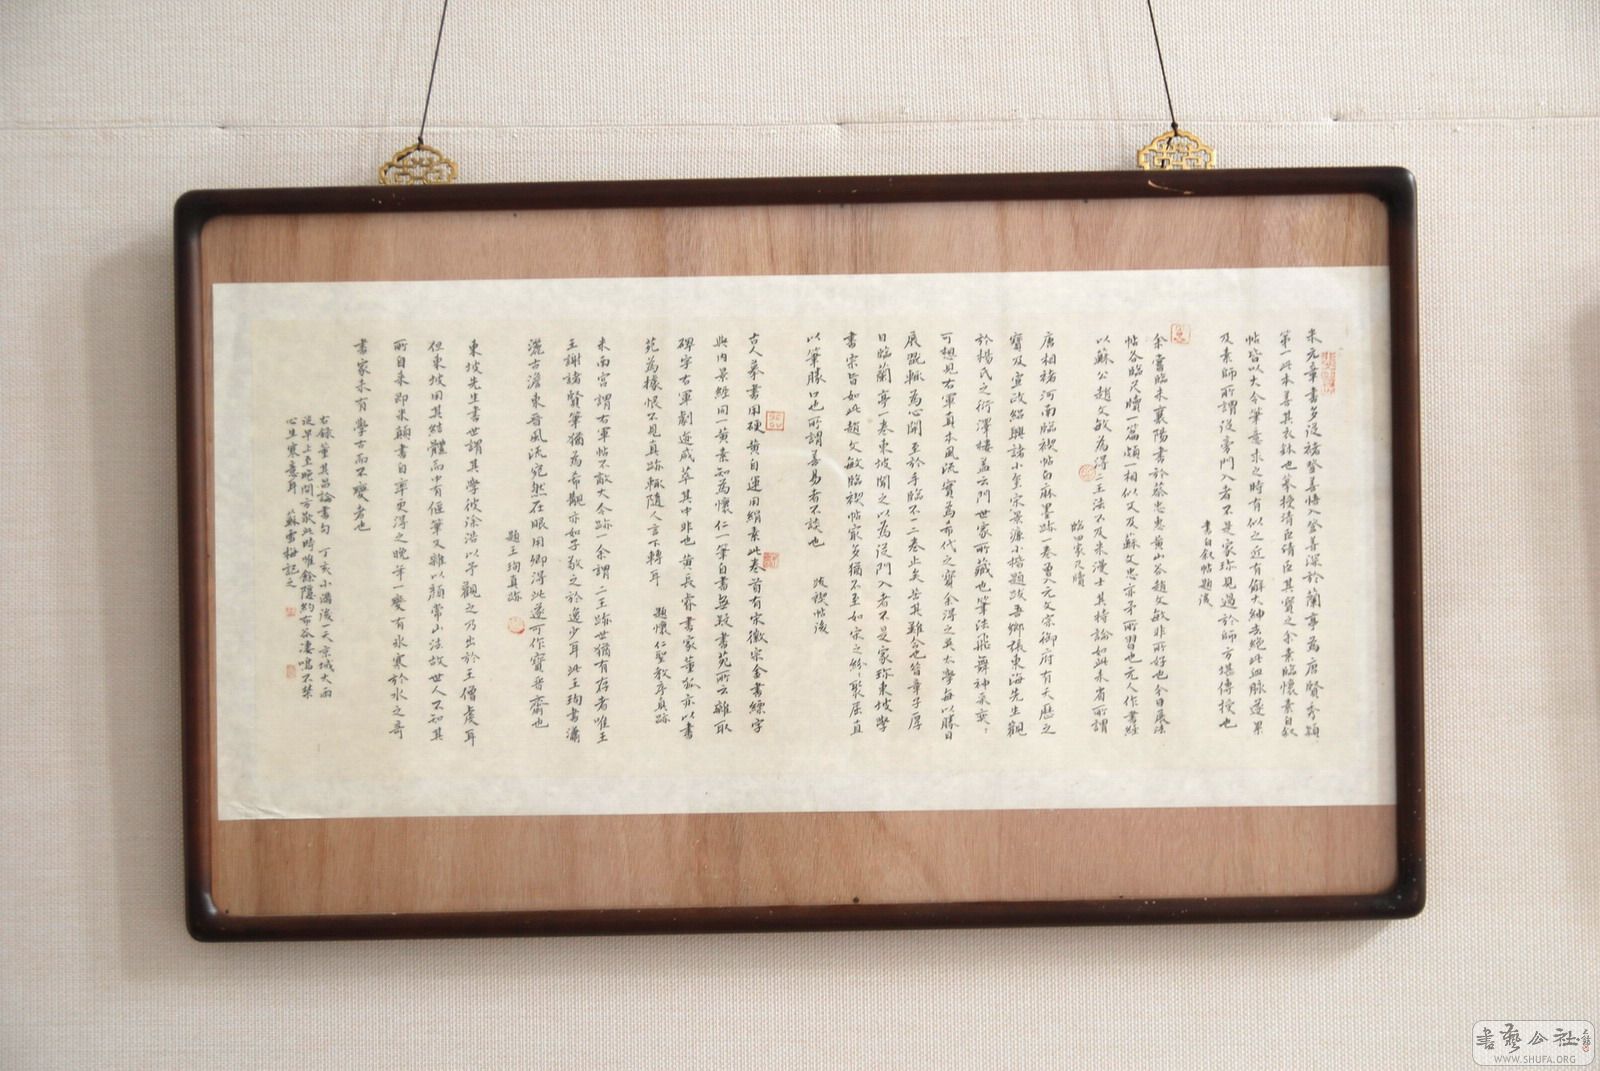 米元章書多從褚登善悟入登善深於蘭亭為唐賢秀穎
第一此本蓋其衣鉢也摹授清臣清臣其寶之余素臨懷素自叙
帖皆以大令筆意求之時有似之近有解大紳去絕此血脉遂累
及素師所謂從旁門入者不是家珍見過於師方堪傳授也
書自叙帖題後
余嘗臨米襄陽書於蔡忠惠黃山谷趙文敏非所好也今日展法
帖各臨尺牘一篇頗一相似又及蘇文忠亦予所習也元人作書經
以蘇公趙文敏為得二王法不及米漫士其持論如此未省所謂
臨四家尺牘
唐相褚河南臨禊帖白麻墨跡一卷曾入元文宗御府有天曆之
寶及宣政紹興諸小璽宋景濂小楷題跋吾鄉張東海先生觀
於楊氏之衍澤樓蓋云門世家所藏也筆法飛舞神采奕〻
可想見右軍真本風流實為希代之寶余得之吳太學每以勝日
展玩輒為心開至於手臨不一二卷止矣苦其難合也昔章子厚
日臨蘭亭一卷東坡聞之以為從門入者不是家珍東坡學
書宗旨如此趙文敏臨禊帖最多猶不至如宋之紛〻聚Discussion直
以筆勝口也所謂善易者不談也
跋禊帖後
古人摹書用硬黃自運用絹素此卷首有宋徽宗金書縹字
與內景經同一黃素知為懷仁一筆自書無疑書苑所云雜取
碑字右軍劇迹咸萃其中非也黃長睿書家董狐亦以書
苑為據恨不見真跡輒隨人言下轉耳
題懷仁聖教序真跡
米南宮謂右軍帖不敵大令跡一余謂二王跡世猶有存者唯王
王謝諸賢筆猶為希覯亦如子敬之於逸少耳此王珣書瀟
灑古澹東晉風流宛然在眼用卿得此遂可作寶晉齋也
題王珣真跡
東坡先生書世謂其學徐浩以予觀之乃出於王僧虔耳
但東坡用其結體而中有偃筆又雜以顏常山法故世人不知其
所自來即米顛書自率更得之晚年一變有冰寒於水之奇
書家未有學古而不變者也
右錄董其昌論書句　丁亥小滿後一天京城大雨
從早上至晚間方歇此時唯餘隱約布谷淒鳴不禁
心生寒意耳　蘇雪梅記之
書藝公社
WWW.SHUFA.ORG